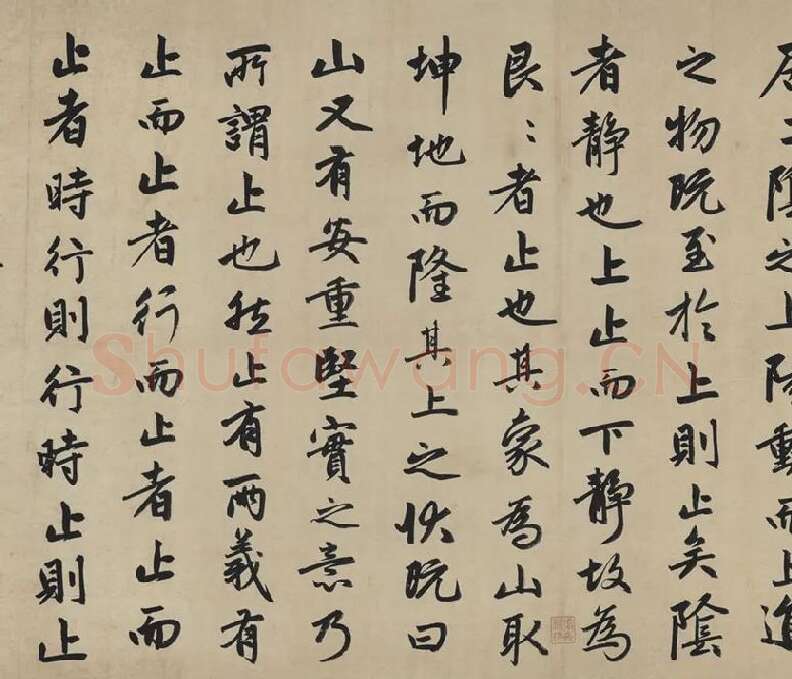 居二陰之上陽動而上進
之物既至於上則止矣陰
者靜也上止而下靜故為
艮〻者止也其象為山取
坤地而隆其上之状既曰
山又有安重堅實之意乃
所謂止也然止有兩義有
止而止者行而止者止而
止者時行則行時止則止
Shufawang.CN